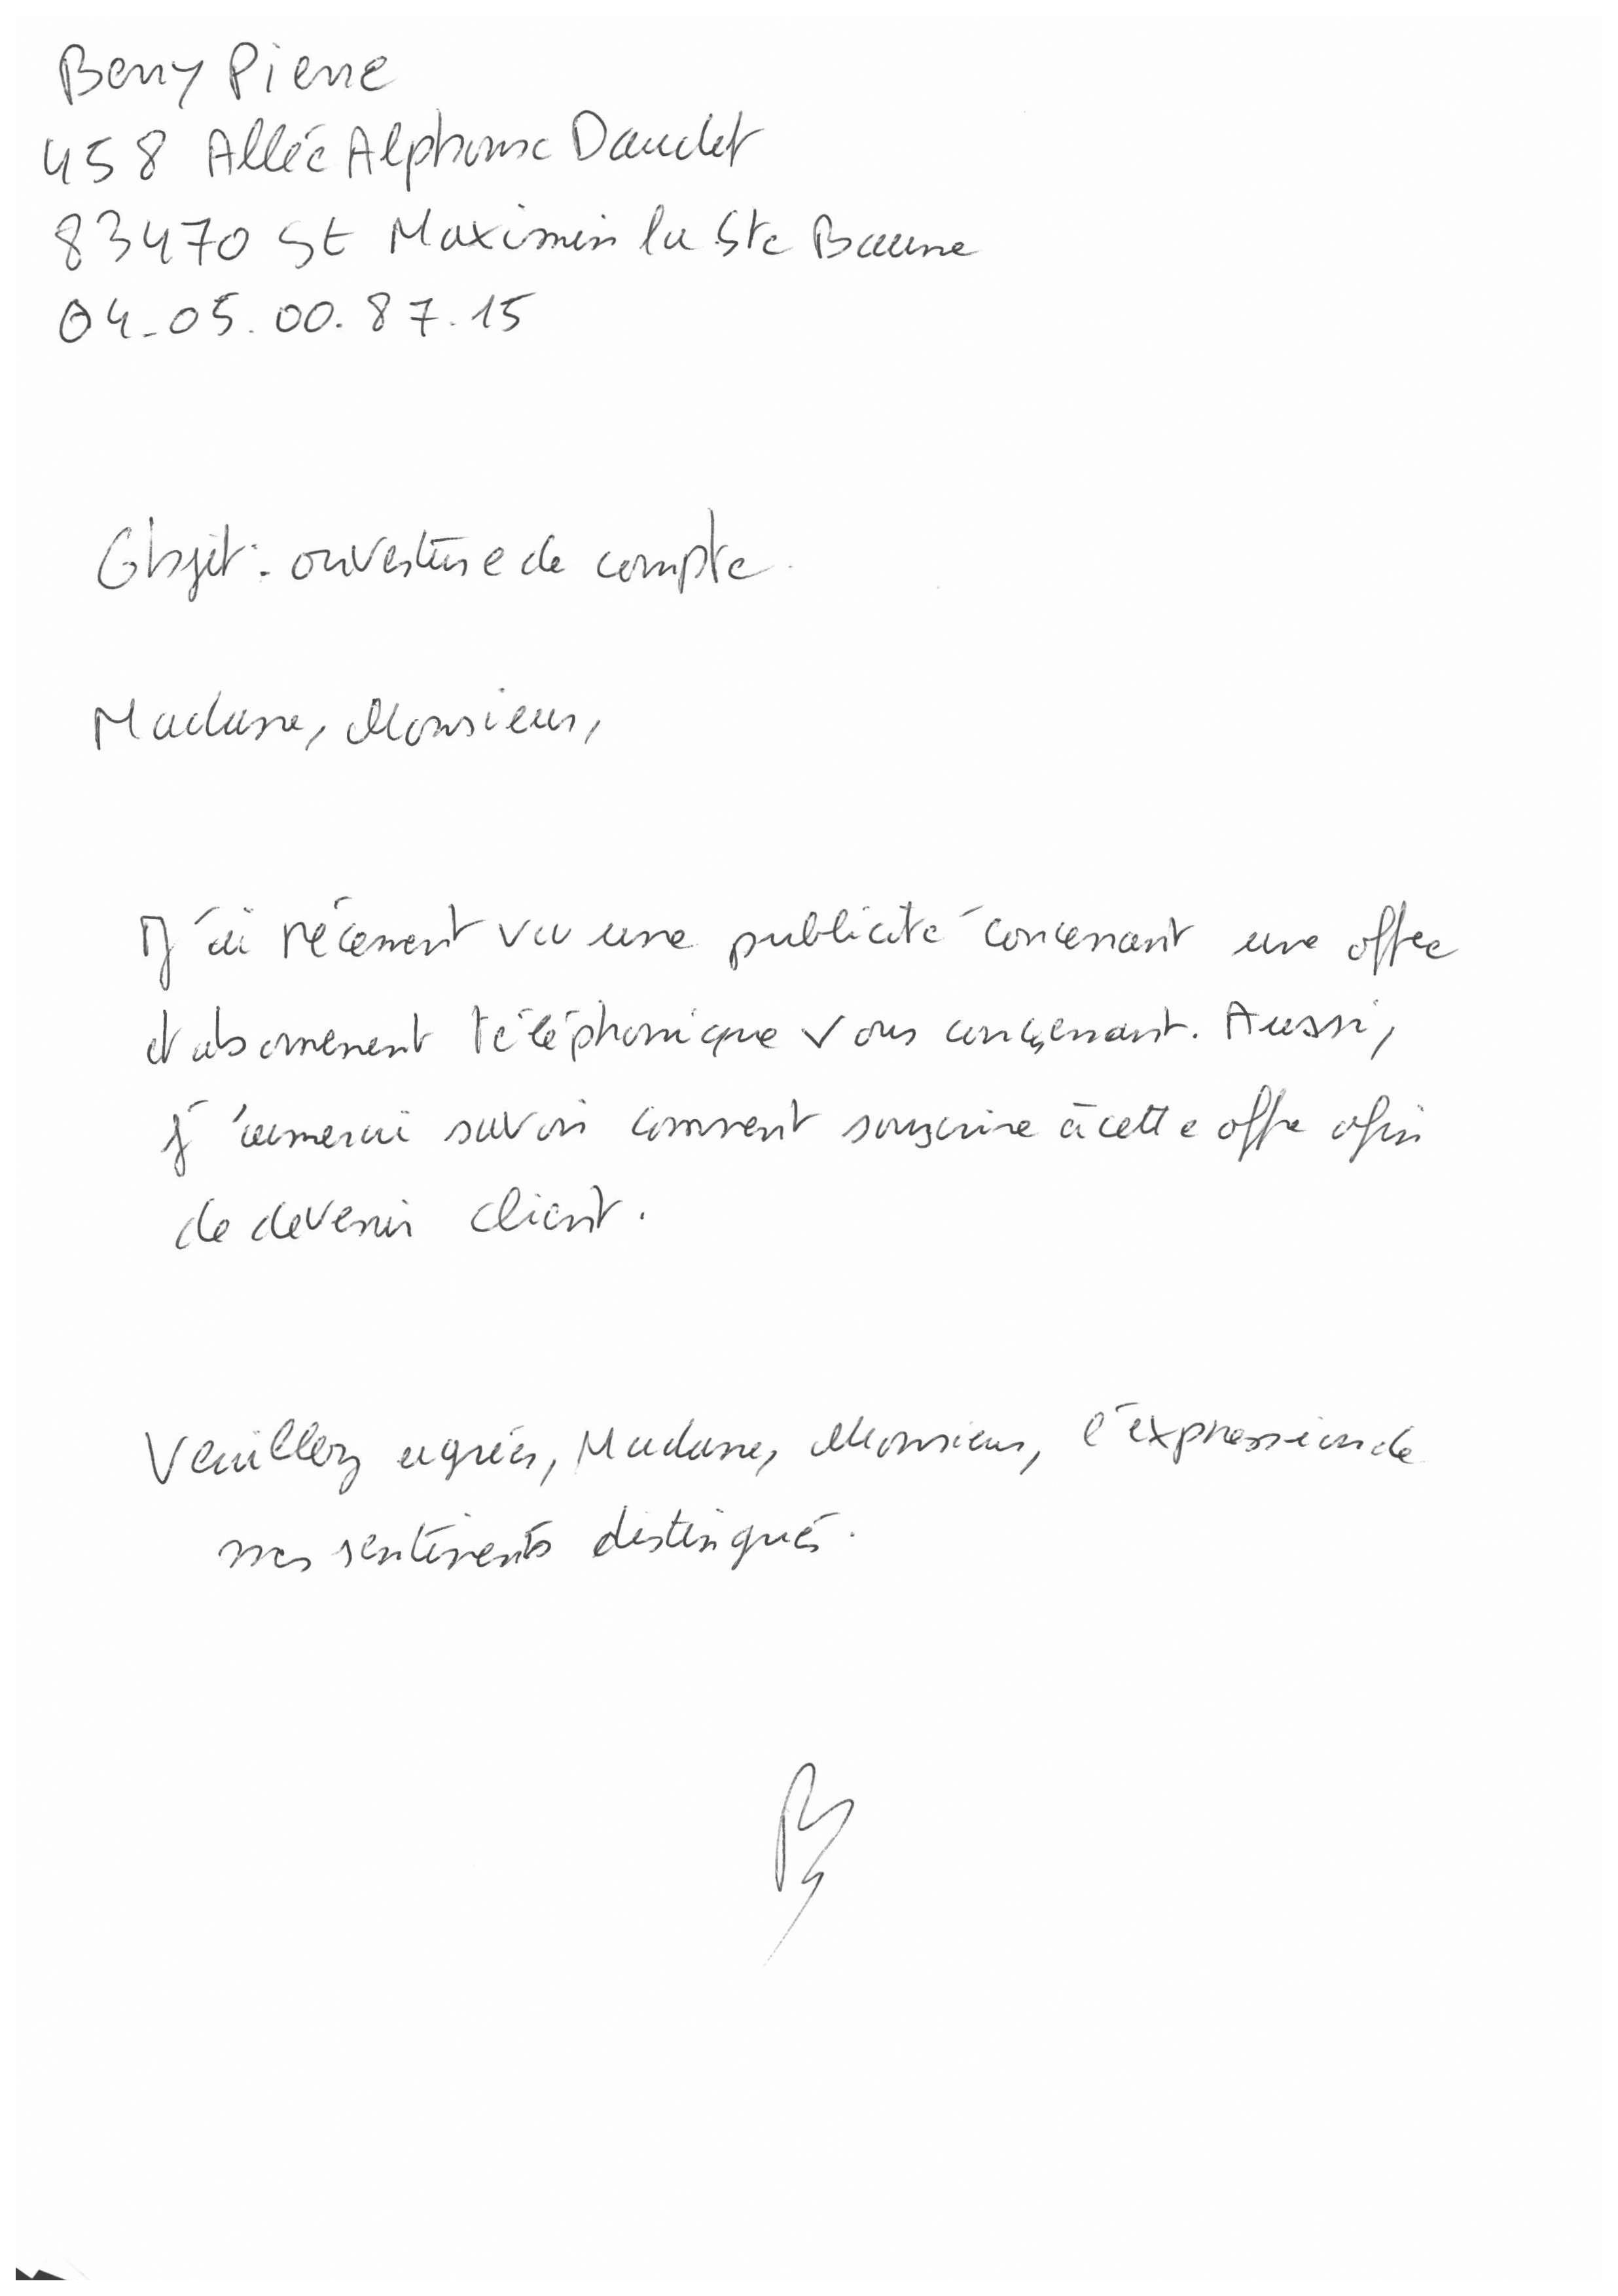 Berry Pierre
458 Allée Alphonse Daudet
83470 St Maximin la Ste Baume
04.05.00.87.15
Objet : ouverture de compte.
Madame, Monsieur,
J'ai récement vu une publicité concernant une offre
d'abonnement téléphonique vous concernant. Aussi,
j'aimerai savoir comment souscrire à cette offre afin
de devenir client.
Veuillez agréer, Madame, Monsieur, l'expression de
mes sentiments distingués.